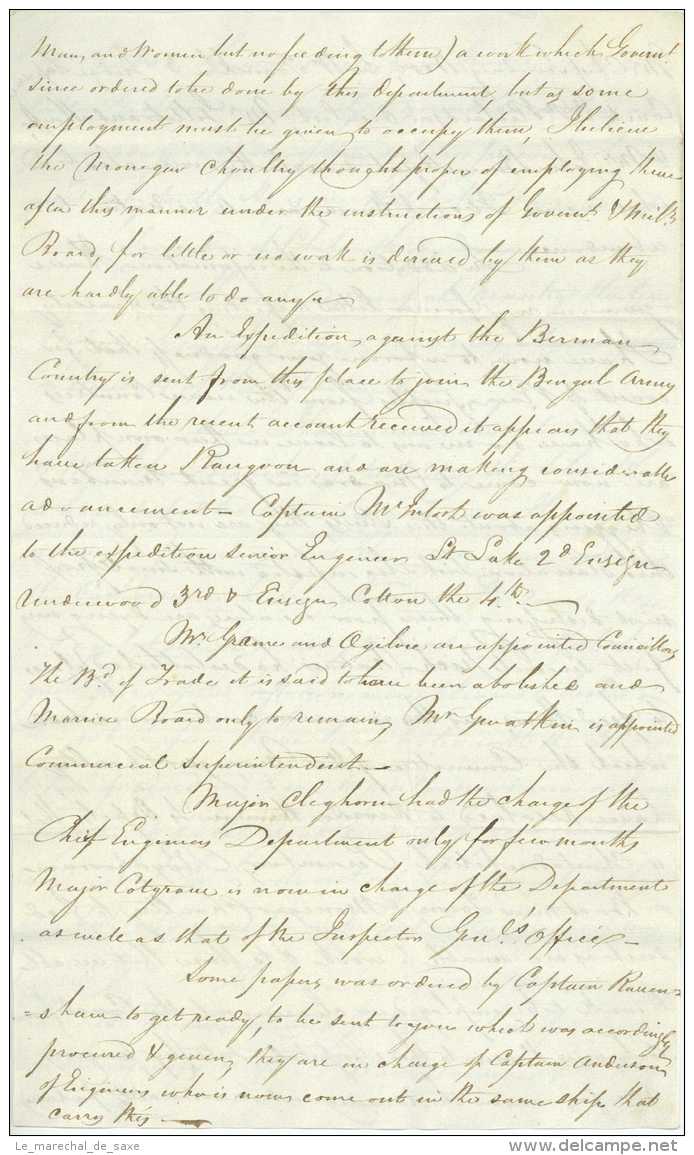 Man, and Women but no feeding to them) a work which Governt.
since ordered to be done by this department, but as some
employment must be given to occupy them, I believe
the Monegar Choultry thought proper of employing them
after this manner under the instructions of Governt. & Mily.
Board, for little or no work is derived by them as they
are hardly able to do any
An Expedition against the Berman
Country is sent from this place to join the Bengal Army
and from the recent account received it appears that they
have taken Rangoon and are making considerable
advancement – Captain McIntosh was appointed
to the expedition senior Engineer Lt Lake 2d Ensign
Underwood 3rd & Ensign Cotton the 4th. —
Mr. Græme and Ogilvie are appointed Councillors
The Bd. of Trade it is said to have been abolished and
Marine Board only to remain, Mr Gwatkin is appointed
Commercial Superintendent. —
Major Cleghorn had the charge of the
Chief Engineers Department only for few months
Major Cotgrave is now in charge of the Department
as well as that of the Inspector Genl.s' Office —
Some papers was ordered by Captain Raven=
=shaw to get ready, to be sent to you which was accordingly
procured & given, they are in charge of Captain Anderson
of Engineers who is now come out in the same ship that
carry this —
Le_marechal_de_saxe
delcampe.net